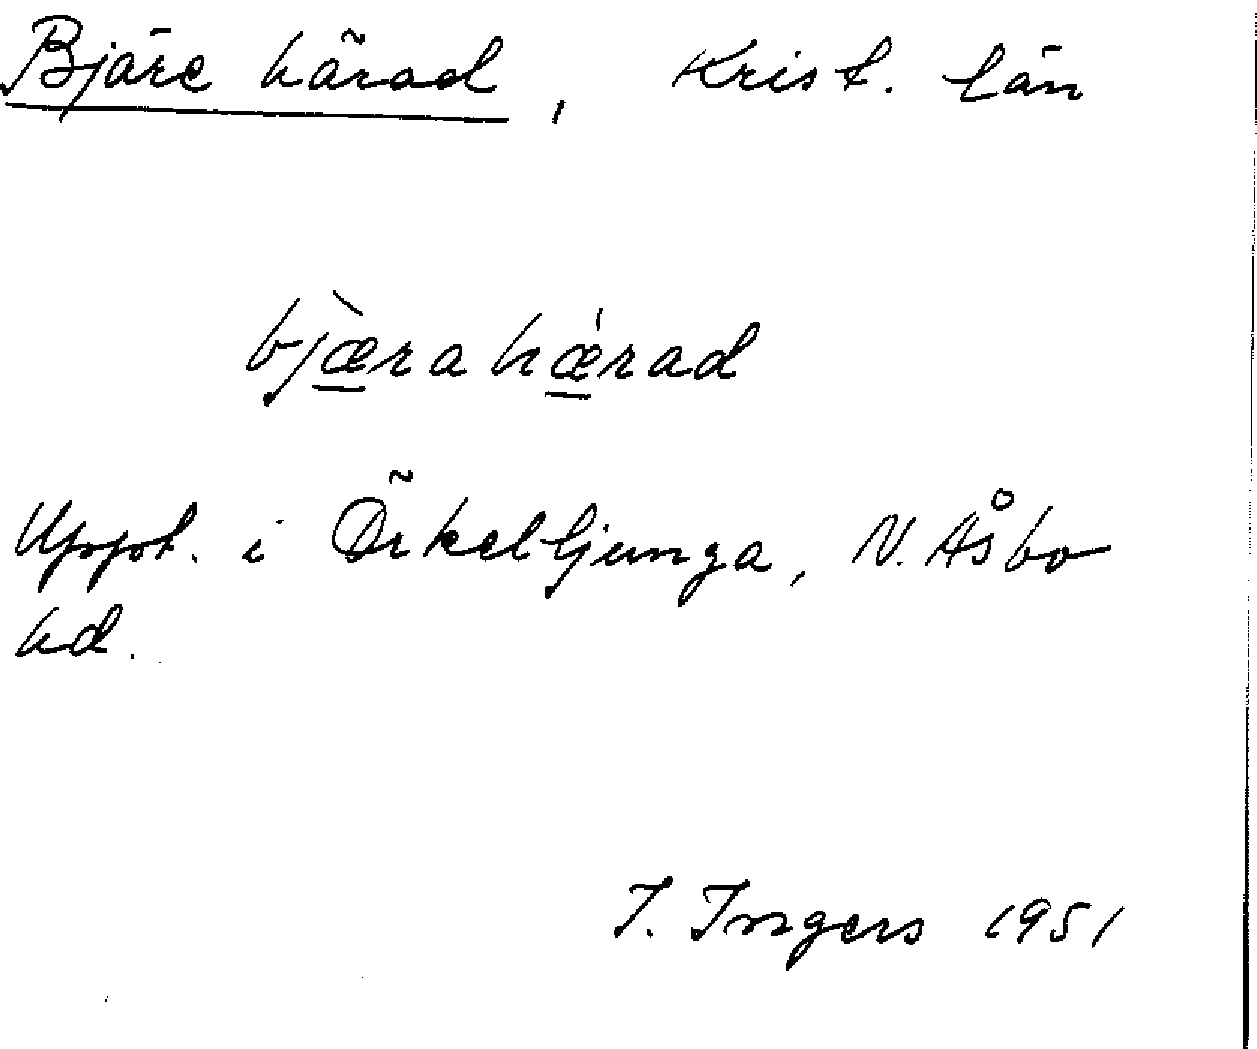 Bjäre härad, Krist. län
bjæ̀rahǽrad
Uppt. i Örkelljunga, N. Åsbo
hd.
I. Ingers 1951